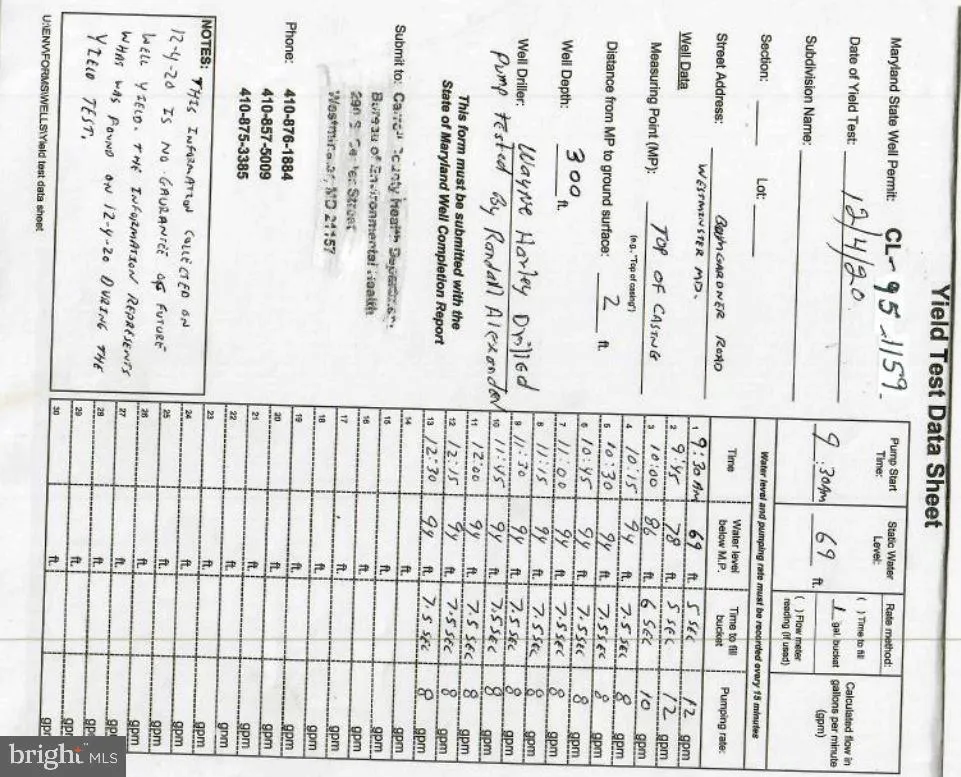 Yield Test Data Sheet
Maryland State Well Permit: CL-95-1159
Date of Yield Test: 12/4/20
Subdivision Name:
Section: Lot:
Street Address: BAUMGARDNER ROAD
WESTMINSTER MD.
Well Data
Measuring Point (MP): TOP OF CASING
(e.g., "Top of casing")
Distance from MP to ground surface: 2 ft.
Well Depth: 300 ft.
Well Driller: Wayne Harley Drilled
Pump tested By Randall Alexander
This form must be submitted with the
State of Maryland Well Completion Report
Submit to: Carroll County Health Department
Bureau of Environmental Health
290 S Center Street
Westminster, MD 21157
Phone: 410-876-1884
410-857-5009
410-875-3385
NOTES: THIS INFORMATION COLLECTED ON
12-4-20 IS NO GAURANTEE OF FUTURE
WELL YIELD. THE INFORMATION REPRESENTS
WHAT WAS FOUND ON 12-4-20 DURING THE
YIELD TEST.
U:\ENV\FORMS\WELLS\Yield test data sheet
Pump Start Time: Static Water Level: Rate method: Calculated flow in gallons per minute (gpm)
9:30AM 69 ft. ( ) Time to fill 1 gal. bucket ( ) Flow meter reading (if used)
Water level and pumping rate must be recorded every 15 minutes
Time Water level below M.P. Time to fill bucket Pumping rate:
1 9:30AM 69 ft. 5 SEC 12 gpm
2 9:45 78 ft. 5 SEC 12 gpm
3 10:00 86 ft. 6 SEC 10 gpm
4 10:15 94 ft. 7.5 SEC 8 gpm
5 10:30 94 ft. 7.5 SEC 8 gpm
6 10:45 94 ft. 7.5 SEC 8 gpm
7 11:00 94 ft. 7.5 SEC 8 gpm
8 11:15 94 ft. 7.5 SEC 8 gpm
9 11:30 94 ft. 7.5 SEC 8 gpm
10 11:45 94 ft. 7.5 SEC 8 gpm
11 12:00 94 ft. 7.5 SEC 8 gpm
12 12:15 94 ft. 7.5 SEC 8 gpm
13 12:30 94 ft. 7.5 SEC 8 gpm
14 ft. gpm
15 ft. gpm
16 ft. gpm
17 ft. gpm
18 ft. gpm
19 ft. gpm
20 ft. gpm
21 ft. gpm
22 ft. gpm
23 ft. gpm
24 ft. gpm
25 ft. gpm
26 ft. gpm
27 ft. gpm
28 ft.
29 ft.
30 ft.
bright MLS